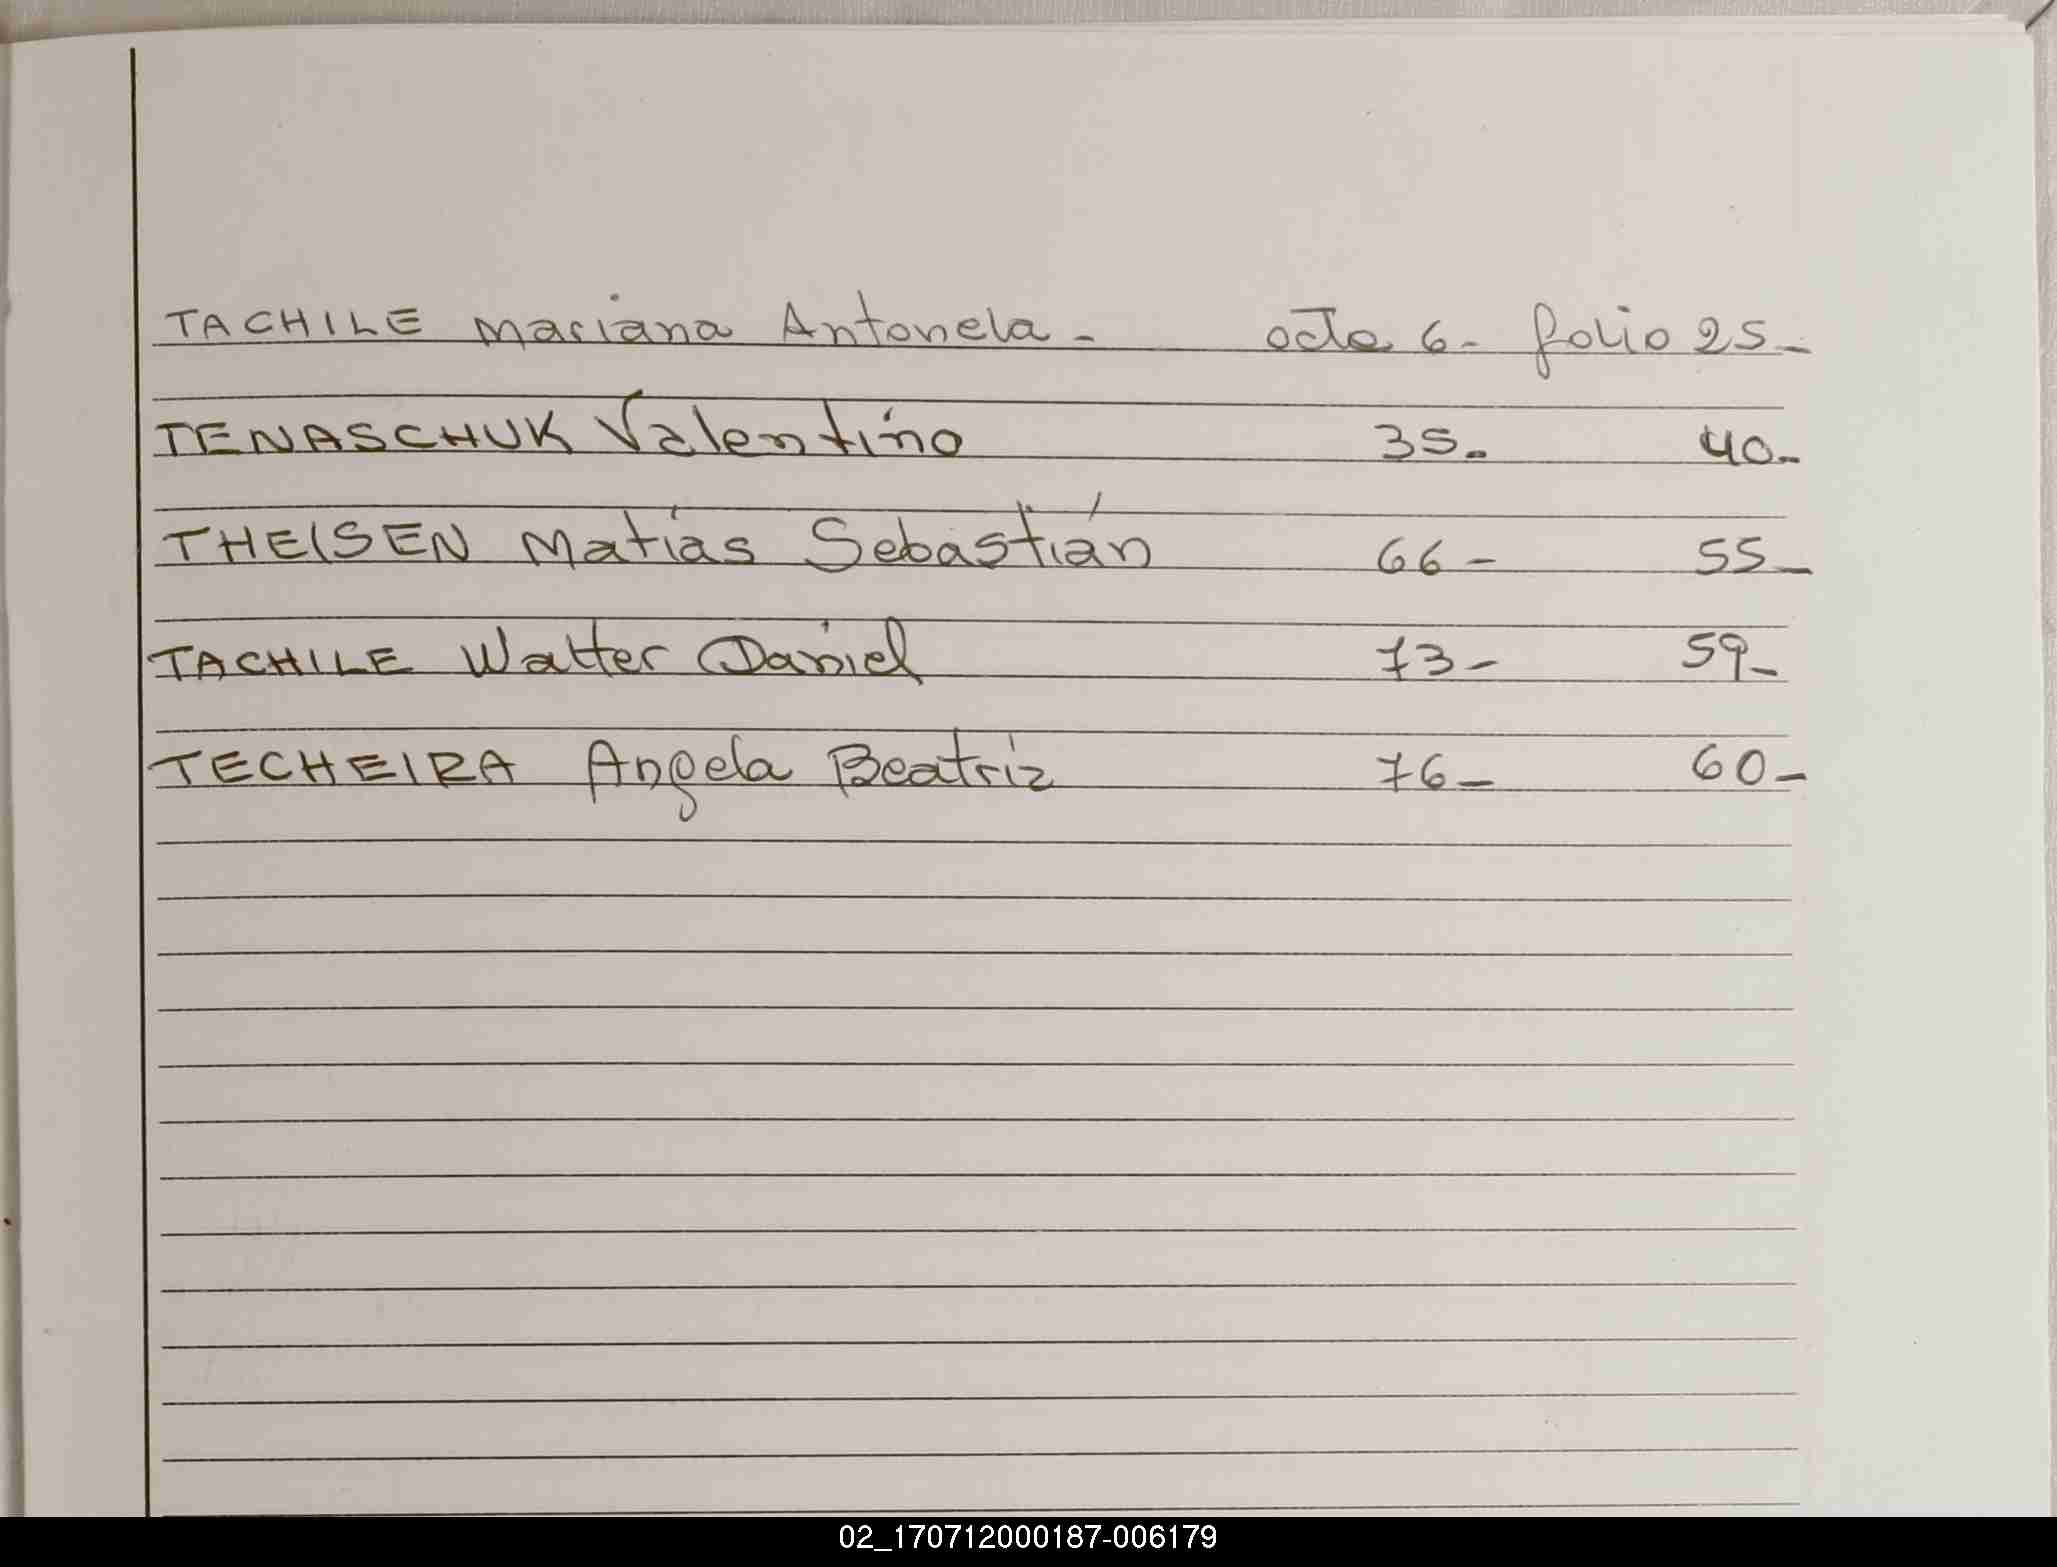 TACHILE Mariana Antonela - acta 6 - folio 25 -
TENASCHUK Valentino 35 - 40 -
THEISEN Matías Sebastián 66 - 55 -
TACHILE Walter Daniel 73 - 59 -
TECHEIRA Angela Beatriz 76 - 60 -
02_170712000187-006179